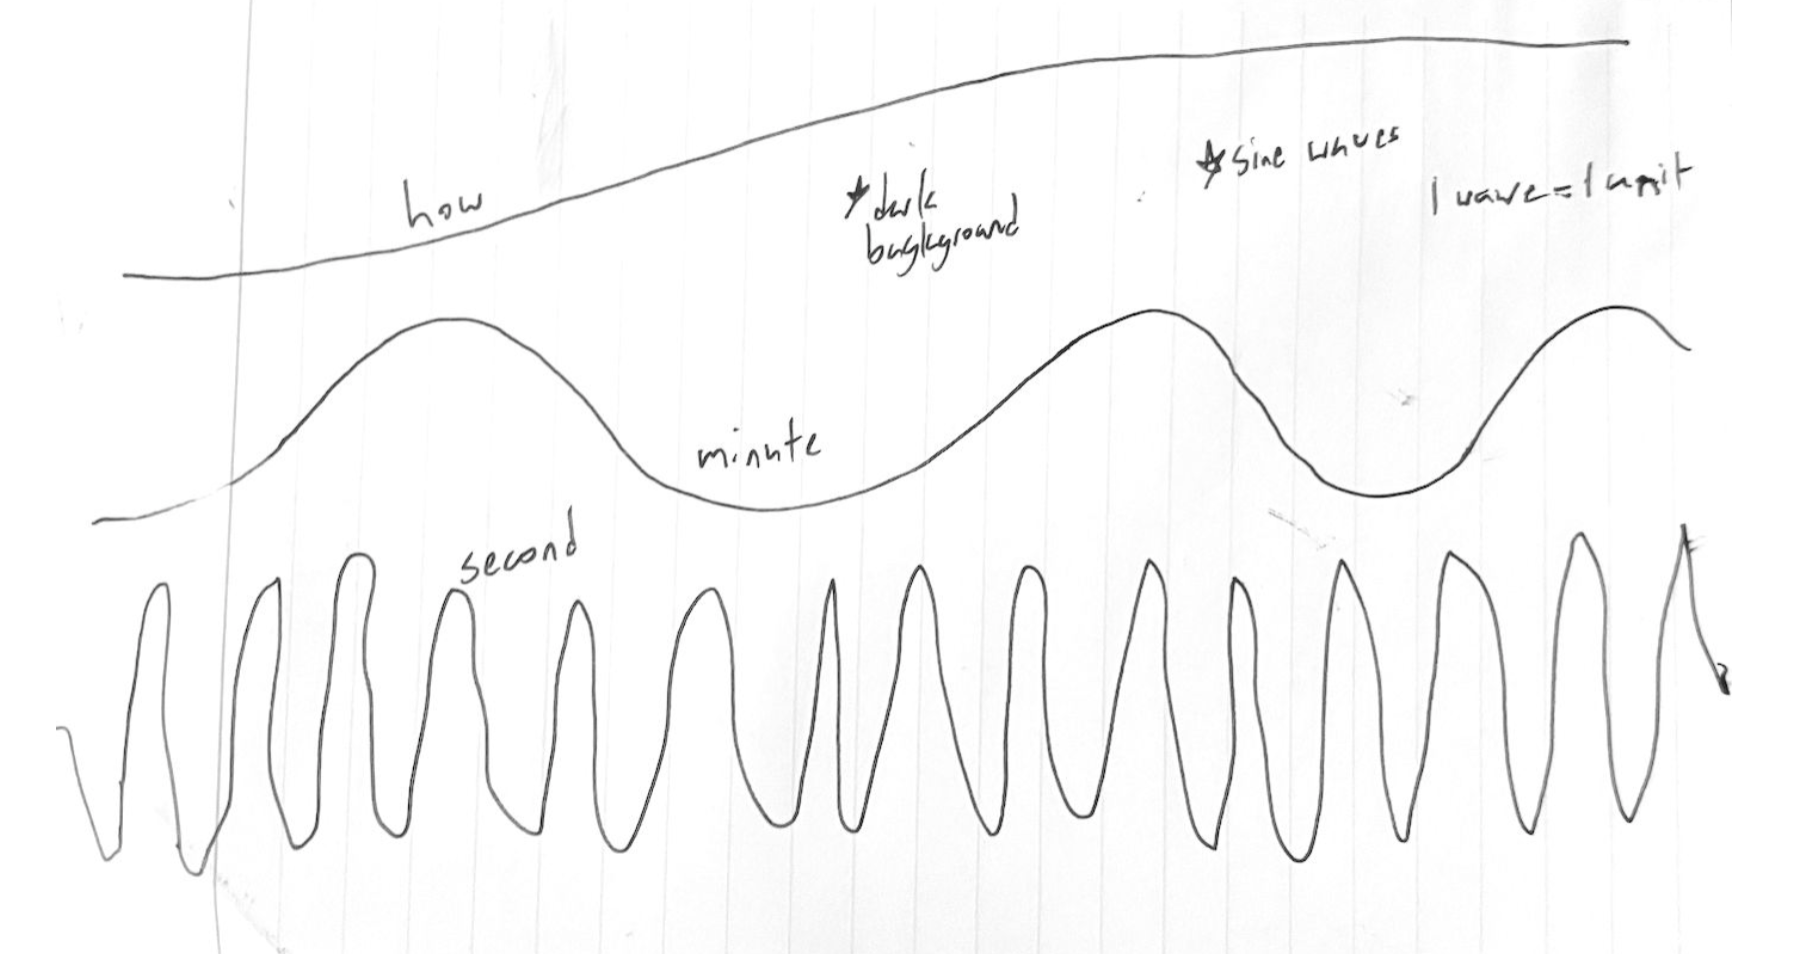 how
★ dark
bagkground
★ sine waves
1 wave = 1 unit
minute
second